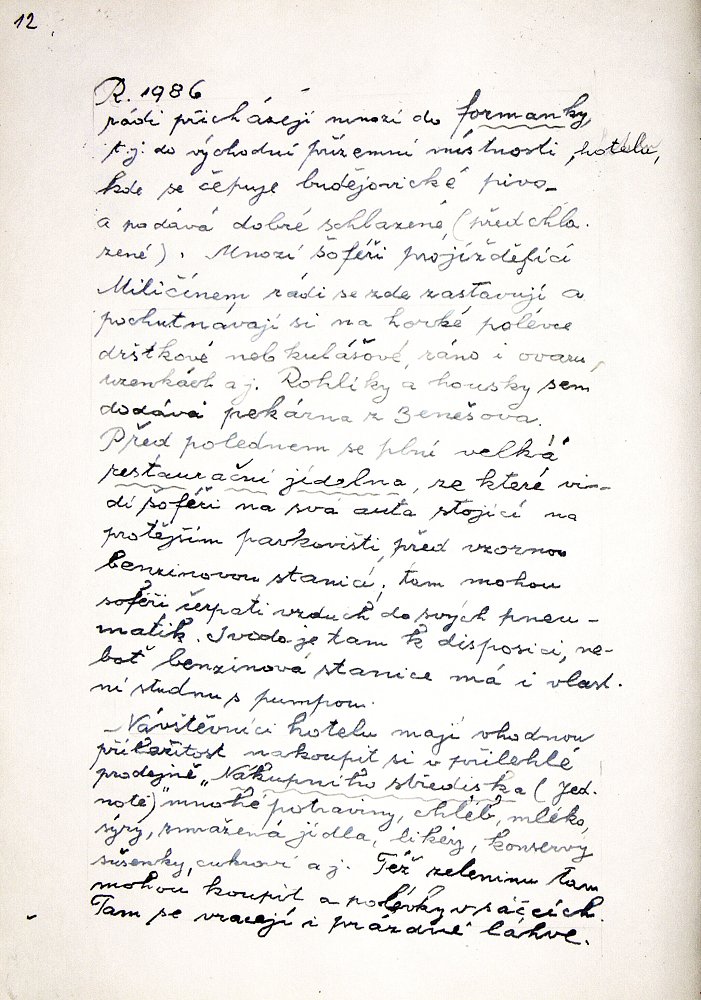 12
R. 1986
rádi přicházejí mnozí do formanky
t.j. do východní přízemní místnosti hotelu,
kde se čepuje budějovické pivo
a podává dobré schlazené (předchla-
zené). Mnozí šoféři projíždějící
Miličínem rádi se zde zastavují a
pochutnávají si na horké polévce
držtkové neb kulášové, ráno i ovaru,
uzenkách aj. Rohlíky a housky sem
dodává pekárna z Benešova.
Před polednem se plní velká
restaurační jídelna, ze které vi-
dí šoféři na svá auta stojící na
protějším parkovišti před vzornou
benzinovou stanicí, tam mohou
šoféři čerpati vzduch do svých pneu-
matik. I voda je tam k disposici, ne-
boť benzinová stanice má i vlast-
ní studnu s pumpou.
Návštěvníci hotelu mají vhodnou
příležitost nakoupit si v přilehlé
prodejně „Nákupního střediska (Jed-
noty)" mnohé potraviny, chléb, mléko,
sýry, zmražená jídla, likéry, konservy
sušenky, cukroví a j. Též zeleninu tam
mohou koupit a polévky v sáčcích.
Tam se vracejí i prázdné láhve.